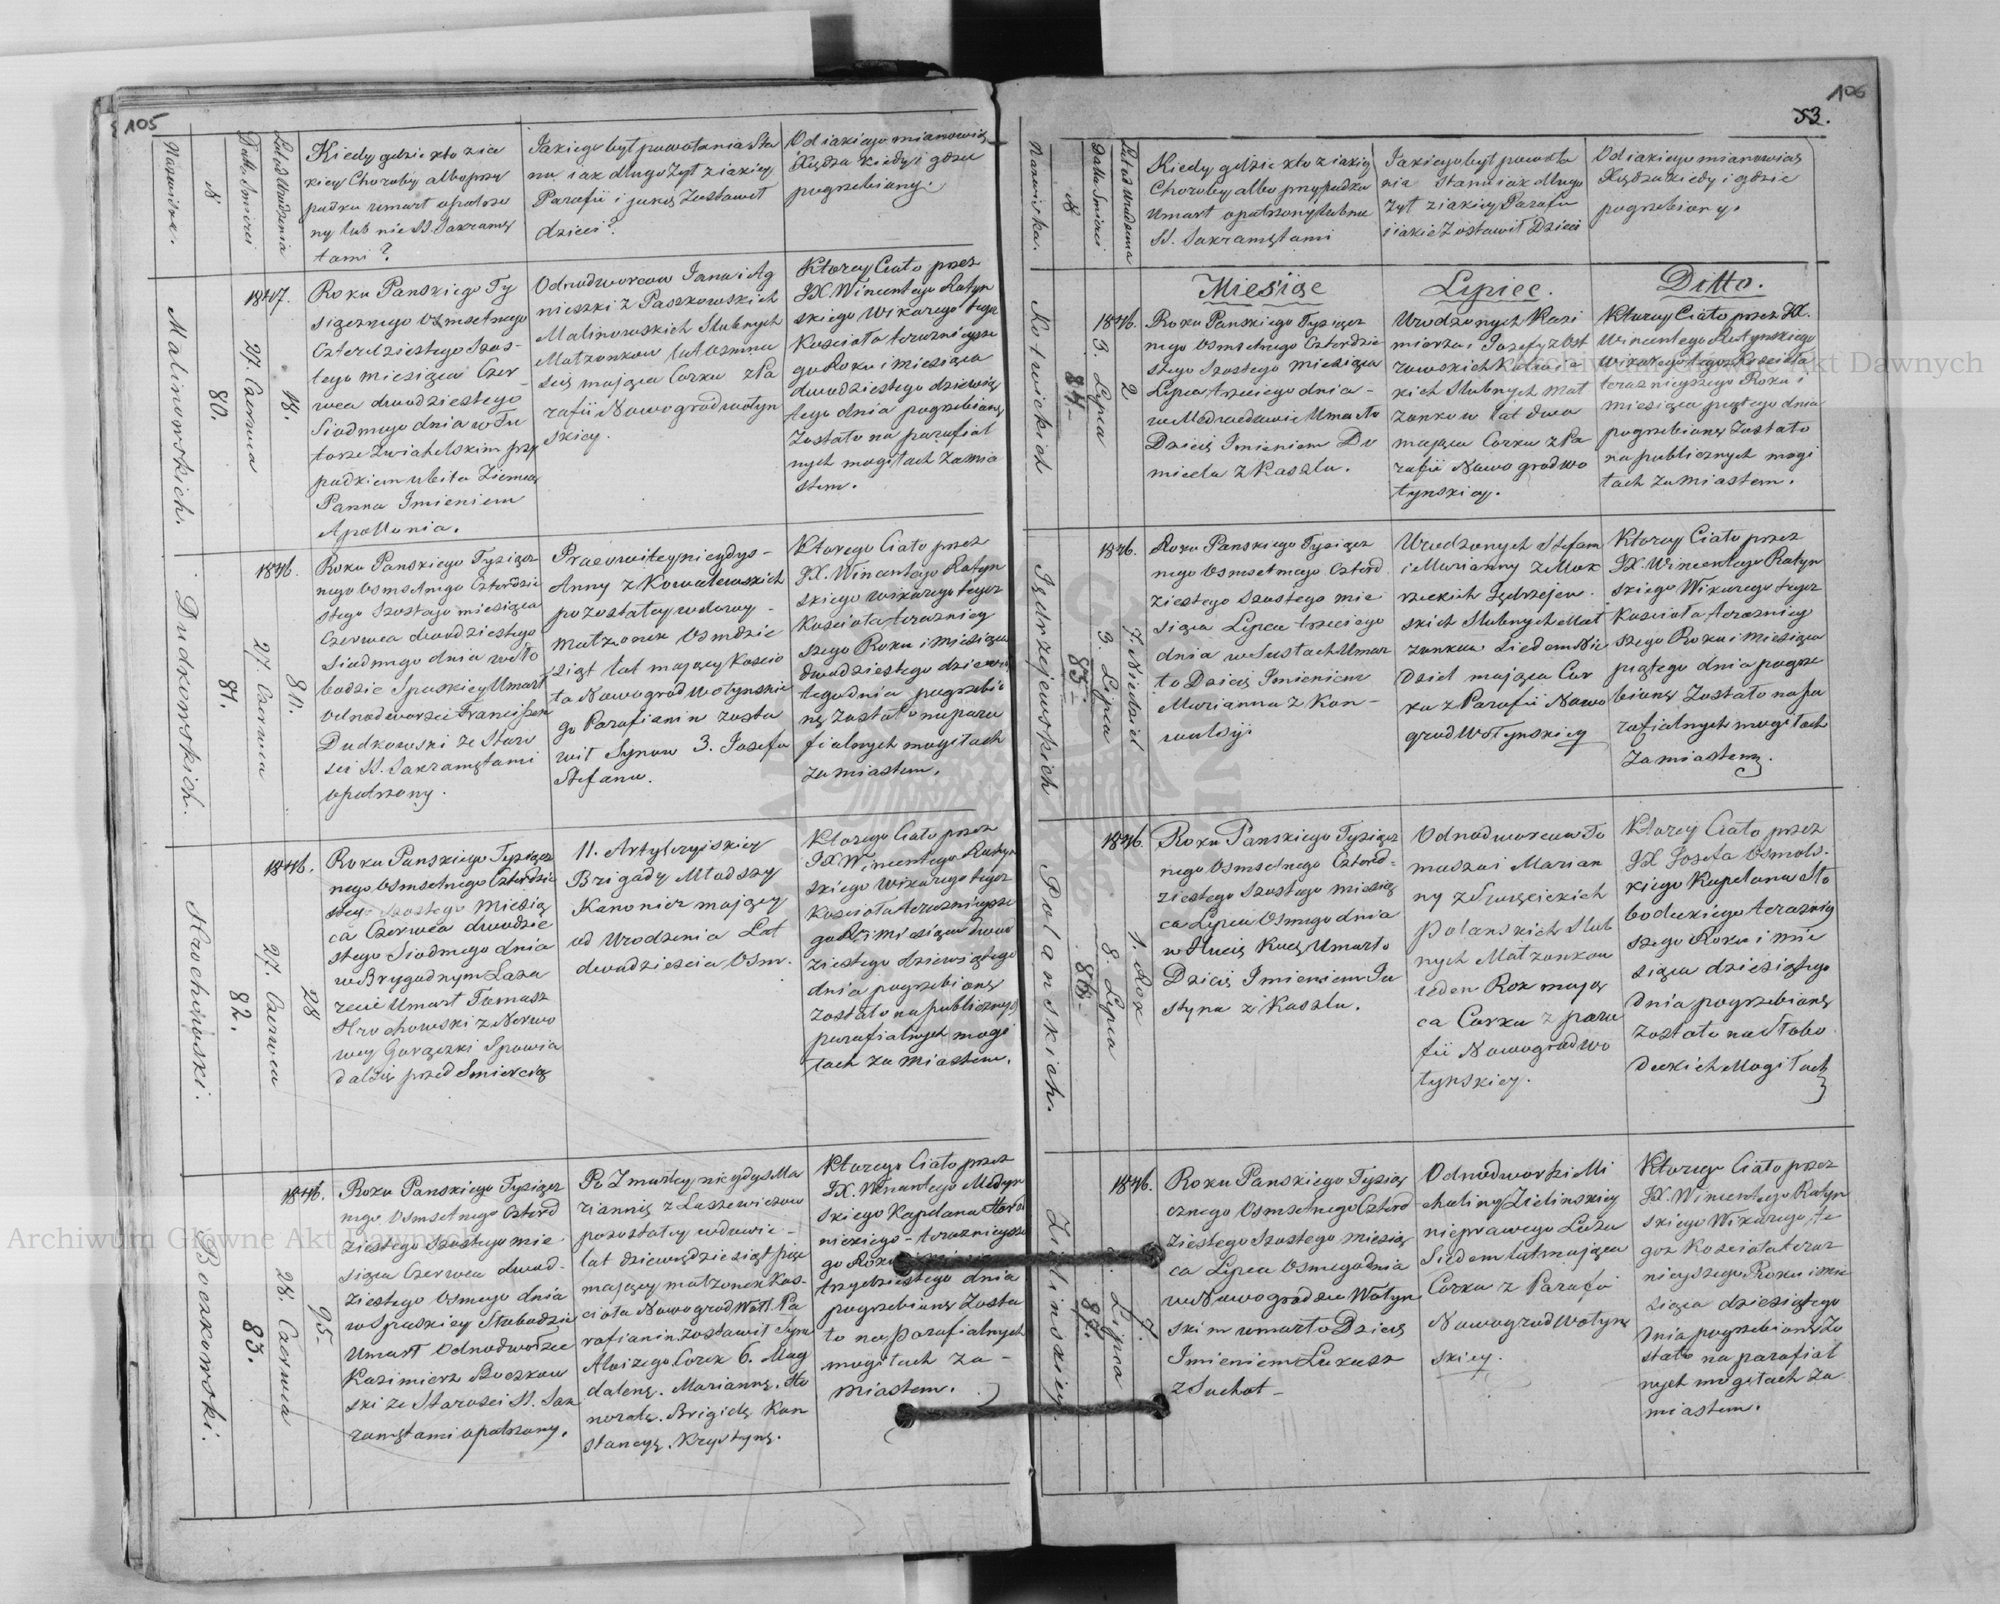 105
Nazwiska.
N
Data Smierci
Lat od Urodzenia
Kiedy gdzie kto z ja
kiey Choroby albo przy
padku umarł opatrzo
ny lub nie SS. Sakramę
tami?
Jakiego był powołania Sta
nu jak długo Żył z iakiey
Parafii i jakie Zostawił
dzieci?
Od iakiego mianowicie
Xiędza kiedy i gdzie
pogrzebiony.
Malinowskich.
80.
1847.
27. Czerwca
18.
Roku Panskiego Ty
siącznego Osmsetnego
Czterdziestego Szos-
tego miesiąca Czer-
wca dwudziestego
Siodmego dnia w Fu
torze Zwiahelskim przy
padkiem ubita Ziemią
Panna Imieniem
Apollonia.
Odnodworcow Jana i Ag
nieszki z Paszkowskich
Malinowskich Slubnych
Małzonkow lat Osmna
scie mająca Corka z Pa
rafii Nowogrodwołyn
skiey.
Ktorey Ciało przez
JX. Wincentego Ratyn
skiego Wikarego tego
Koscioła teraznieysze
go Roku i miesiąca
dwudziestego dziewią
tego dnia pogrzebione
Zostało na parafial
nych mogiłach za mia
stem.
Dudkowskich.
81.
1846.
27. Czerwca
80.
Roku Panskiego Tysiącz
nego Osmsetnego Czterdzie
stego Szostego miesiąca
Czerwca dwudziestego
Siodmego dnia w Sło
bodzie Spaskiey Umarł
Odnodworzec Franciszek
Dudkowski ze Staro
sci SS. Sakramętami
opatrzony.
Pracowitey niegdys-
Anny z Kowalewskich
pozostałey wdowy-
Małzonek Osmdzie
siąt lat maiący Koscio
ła Nowogrodwołynskie
go Parafianin zosta
wił Synow 3. Jozefa
Stefana.
Ktorego Ciało przez
JX. Wincentego Ratyn
skiego wikarego tegoz
Kosciola terazniey
szego Roku i miesiąca
dwudziestego dziewią
tego dnia pogrzebio
ne zostało na para
fialnych mogiłach
za miastem.
Hrochowski.
82.
1846.
27. Czerwca
28
Roku Panskiego Tysiącz
nego Osmsetnego Czterdzie
stego Szostego Miesią
ca Czerwca dwudzie
stego Siodmego dnia
w Brygadnym Laza
recie Umarł Tomasz
Hrochowski z Nerwo
wey Gorączki Spowia
dał się przed Smiercią
11. Artyleryiskiey
Brigady Młodszy
Kanonier maiący
od Urodzenia Lat
dwadziescia Osm.
Ktorego Ciało przez
JX Wincentego Ratyn
skiego Wikarego tegoz
Kosciola teraznieysze
go R. i miesiąca dwu
dziestego dziewiątego
dnia pogrzebione
zostało na publicznych
parafialnych mogi
łach za miastem.
Boczkowski.
83.
1846.
28. Czerwca
95-
Roku Panskiego Tysiącz
nego Osmsetnego Czterd
ziestego Szostego mie
siąca Czerwca dwud-
ziestego Osmego dnia
w Spaskiey Słobodzie
Umarł Odnodworzec
Kazimierz Boczkow
ski ze Starosci SS. Sak
ramętami opatrzony.
Po Zmarłey niegdys Ma
riannie z Laszewiczow
pozostały wdowiec-
lat dziewiędziesiąt pięć
maiący małzonek Kos-
cioła Nowogrod Woł. Pa
rafianin zostawił Syna
Aloizego Corek 6. Mag
dalenę. Mariannę. Ho
noratę. Brigidę Kon
stancyę. Krystynę.
Ktorego Ciało przez
JX. Wincentego Medyn
skiego Kapelana Horod
nickiego - teraznieysze
go Roku
trzydziestego dnia
pogrzebione Zosta
ło na parafialnych
mogiłach za-
miastem.
106
53.
Nazwiska.
N
Data Smierci
Lat od Urodzenia
Kiedy gdzie kto z iakiey
Choroby albo przypadku
Umarł opatrzony lub nie
SS. Sakramętami
Jakiego był powoła
nia Stanu iak długo
Zył z iakiey Parafii
i iakie Zostawił Dzieci
Od iakiego mianowicie
Xiędza kiedy i gdzie
pogrzebiony.
Miesiąc
Lipiec.
Ditto.
Kotwickich
84-
1846.
3. Lipca
2
Roku Panskiego Tysiącz
nego Osmsetnego Czterdzie
stego Szostego miesiąca
Lipca trzeciego dnia-
w Medwedowie Umarło
Dziecię Imieniem Do
micela z Kaszlu.
Urodzonych Kazi
mierza i Jozefy z Ost
rowskich Kotwic
kich Slubnych Mał
zonkow lat dwa
maiąca Corka z Pa
rafii Nowogrodwo
łynskiey.
Ktorey Ciało przez JX.
Wincentego Ratynskiego
Wikarego tegoz Kosciola
teraznieyszego Roku i
miesiąca piątego dnia
pogrzebione Zostało
na publicznych mogi
łach za miastem.
Jędrzejewskich
85-
1846.
3. Lipca
7. Niedziel
Roku Panskiego Tysiącz
nego Osmsetnego Czterd
ziestego Szostego mie
siąca Lipca trzeciego
dnia w Sustach Umar
ło Dziecię Imieniem
Marianna z Kon-
wulsyi
Urodzonych Stefana
i Marianny z Mok
rzeckich Jędrzejew
skich Slubnych Mał
zonkow Siedem Nie
dziel maiąca Cor
ka z Parafii Nowo
grodWołynskiey
Ktorey Ciało przez
JX Wincentego Ratyn
skiego Wikarego tegoz
Kosciola terazniey
szego Roku i miesiąca
piątego dnia pogrze
bione Zostało na Pa
rafialnych mogiłach
Za miastem.
Polanskich.
86-
1846.
8. Lipca
1. Rok
Roku Panskiego Tysiącz
nego Osmsetnego Czterd-
ziestego Szostego miesią
ca Lipca Osmego dnia
w Hucie Umarło
Dziecię Imieniem Ju
styna z Kaszlu.
Odnodworcow To
masza i Marian
ny z Swięcickich
Polanskich Slub
nych Małzonkow
ieden Rok maią
ca Corka z para
fii Nowogrodwo
łynskiey.
Ktorey Ciało przez
JX Jozefa Osmols-
kiego Kapelana Sło
bodzkiego terazniey
szego Roku i mie
siąca dziesiątego
dnia pogrzebione
zostało na Słobo
dzkich Mogiłach
Zielinskiey.
87.
1846.
Lipca
7.
Roku Panskiego Tysią
cznego Osmsetnego Czterd
ziestego Szostego miesią
ca Lipca Osmego dnia
w Nowogrodzie Wołyn
skim umarło Dziecię
Imieniem Łukasz
z Suchot-
Odnodworki Mi
chaliny Zielinskiey
nieprawego Łoża
Siedem lat maiąca
Corka z Parafii
Nowogrodwołyn
skiey.
Ktorego Ciało przez
JX. Wincentego Ratyn
skiego Wikarego te
goz Kosciola teraz
nieyszego Roku i mie
siąca dziesiątego
dnia pogrzebione Zo
stało na parafial
nych mogiłach za
miastem.
Archiwum Główne Akt Dawnych
Archiwum Główne Akt Dawnych